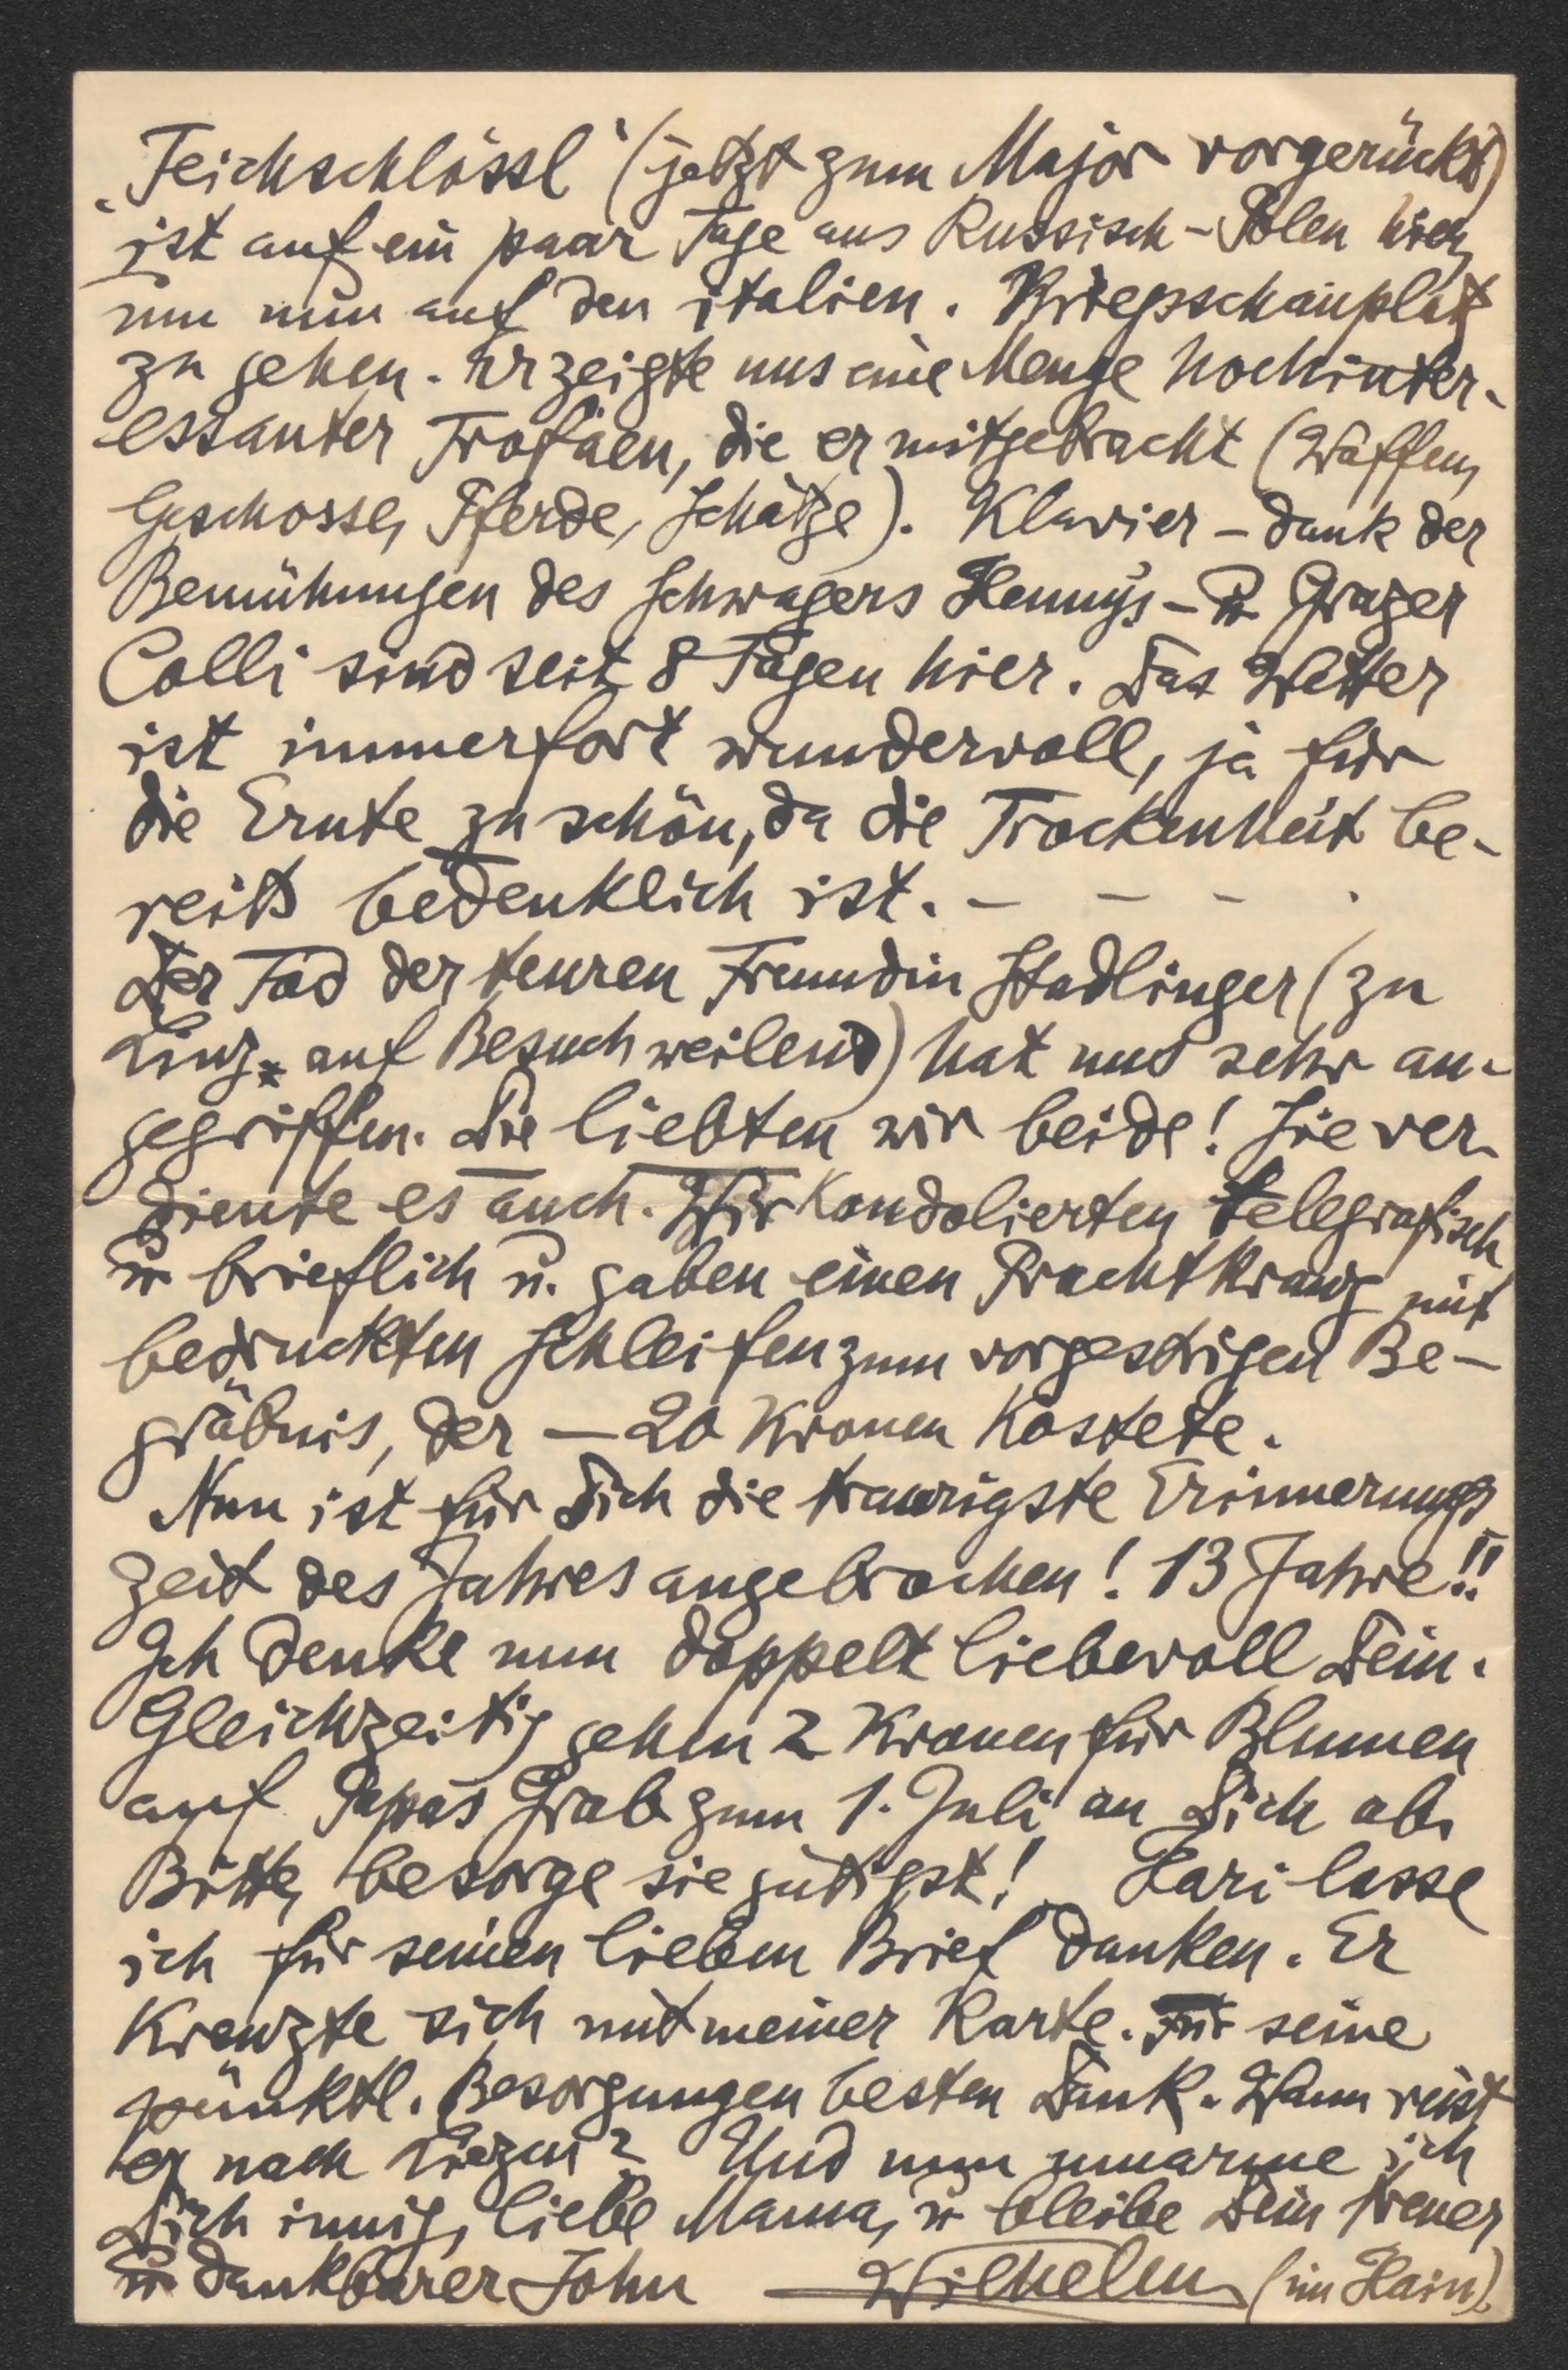 „Teichschlössl“ (jetzt zum Major vorgerückt)
ist auf ein paar Tage aus Russisch-Polen hier,
um nun auf den italien. Kriegsschauplatz
zu gehen. Er zeigte uns eine Menge hochinter-
essanter Trofäen, die er mitgebracht (Waffen,
Geschosse, Pferde, Schätze). Klavier – dank der
Bemühungen des Schwagers Hennys – u. Grazer
Colli sind seit 8 Tagen hier. Das Wetter
ist immerfort wundervoll, ja für
die Ernte zu schön, da die Trockenheit be-
reits bedenklich ist. – – –
Der Tod der teuren Freundin Stadlinger (zu
Linz auf Besuch weilend) hat uns sehr an-
gegriffen. Die liebten wir beide! Sie ver-
diente es auch. Wir kondolierten telegrafisch
u. brieflich u. gaben einen Prachtkranz mit
bedruckten Schleifen zum vorgestrigen Be-
gräbnis, der – 20 Kronen kostete.
Nun ist für Dich die traurigste Erinnerungs
zeit des Jahres angebrochen! 13 Jahre!!
Ich denke nun doppelt liebevoll Dein.
Gleichzeitig gehen 2 Kronen für Blumen
auf Papas Grab zum 1. Juli an Dich ab.
Bitte, besorge sie gütigst! Hari lasse
ich für seinen lieben Brief danken. Er
kreuzte sich mit meiner Karte. Für seine
pünktl. Besorgungen besten Dank. Wann reist
er nach Liezen? Und nun umarme ich
Dich innig, liebe Mama, u. bleibe Dein treuer
u. dankbarer Sohn Wilhelm (im Hain).